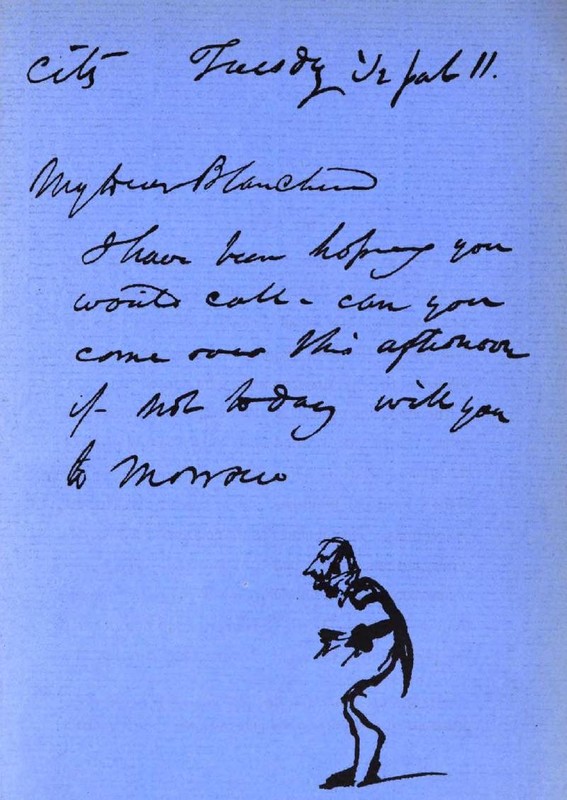 City Tuesday ½ past 11.
My dear Blanchard
I have been hoping you
would call - can you
come over this afternoon
if not to day will you
to morrow